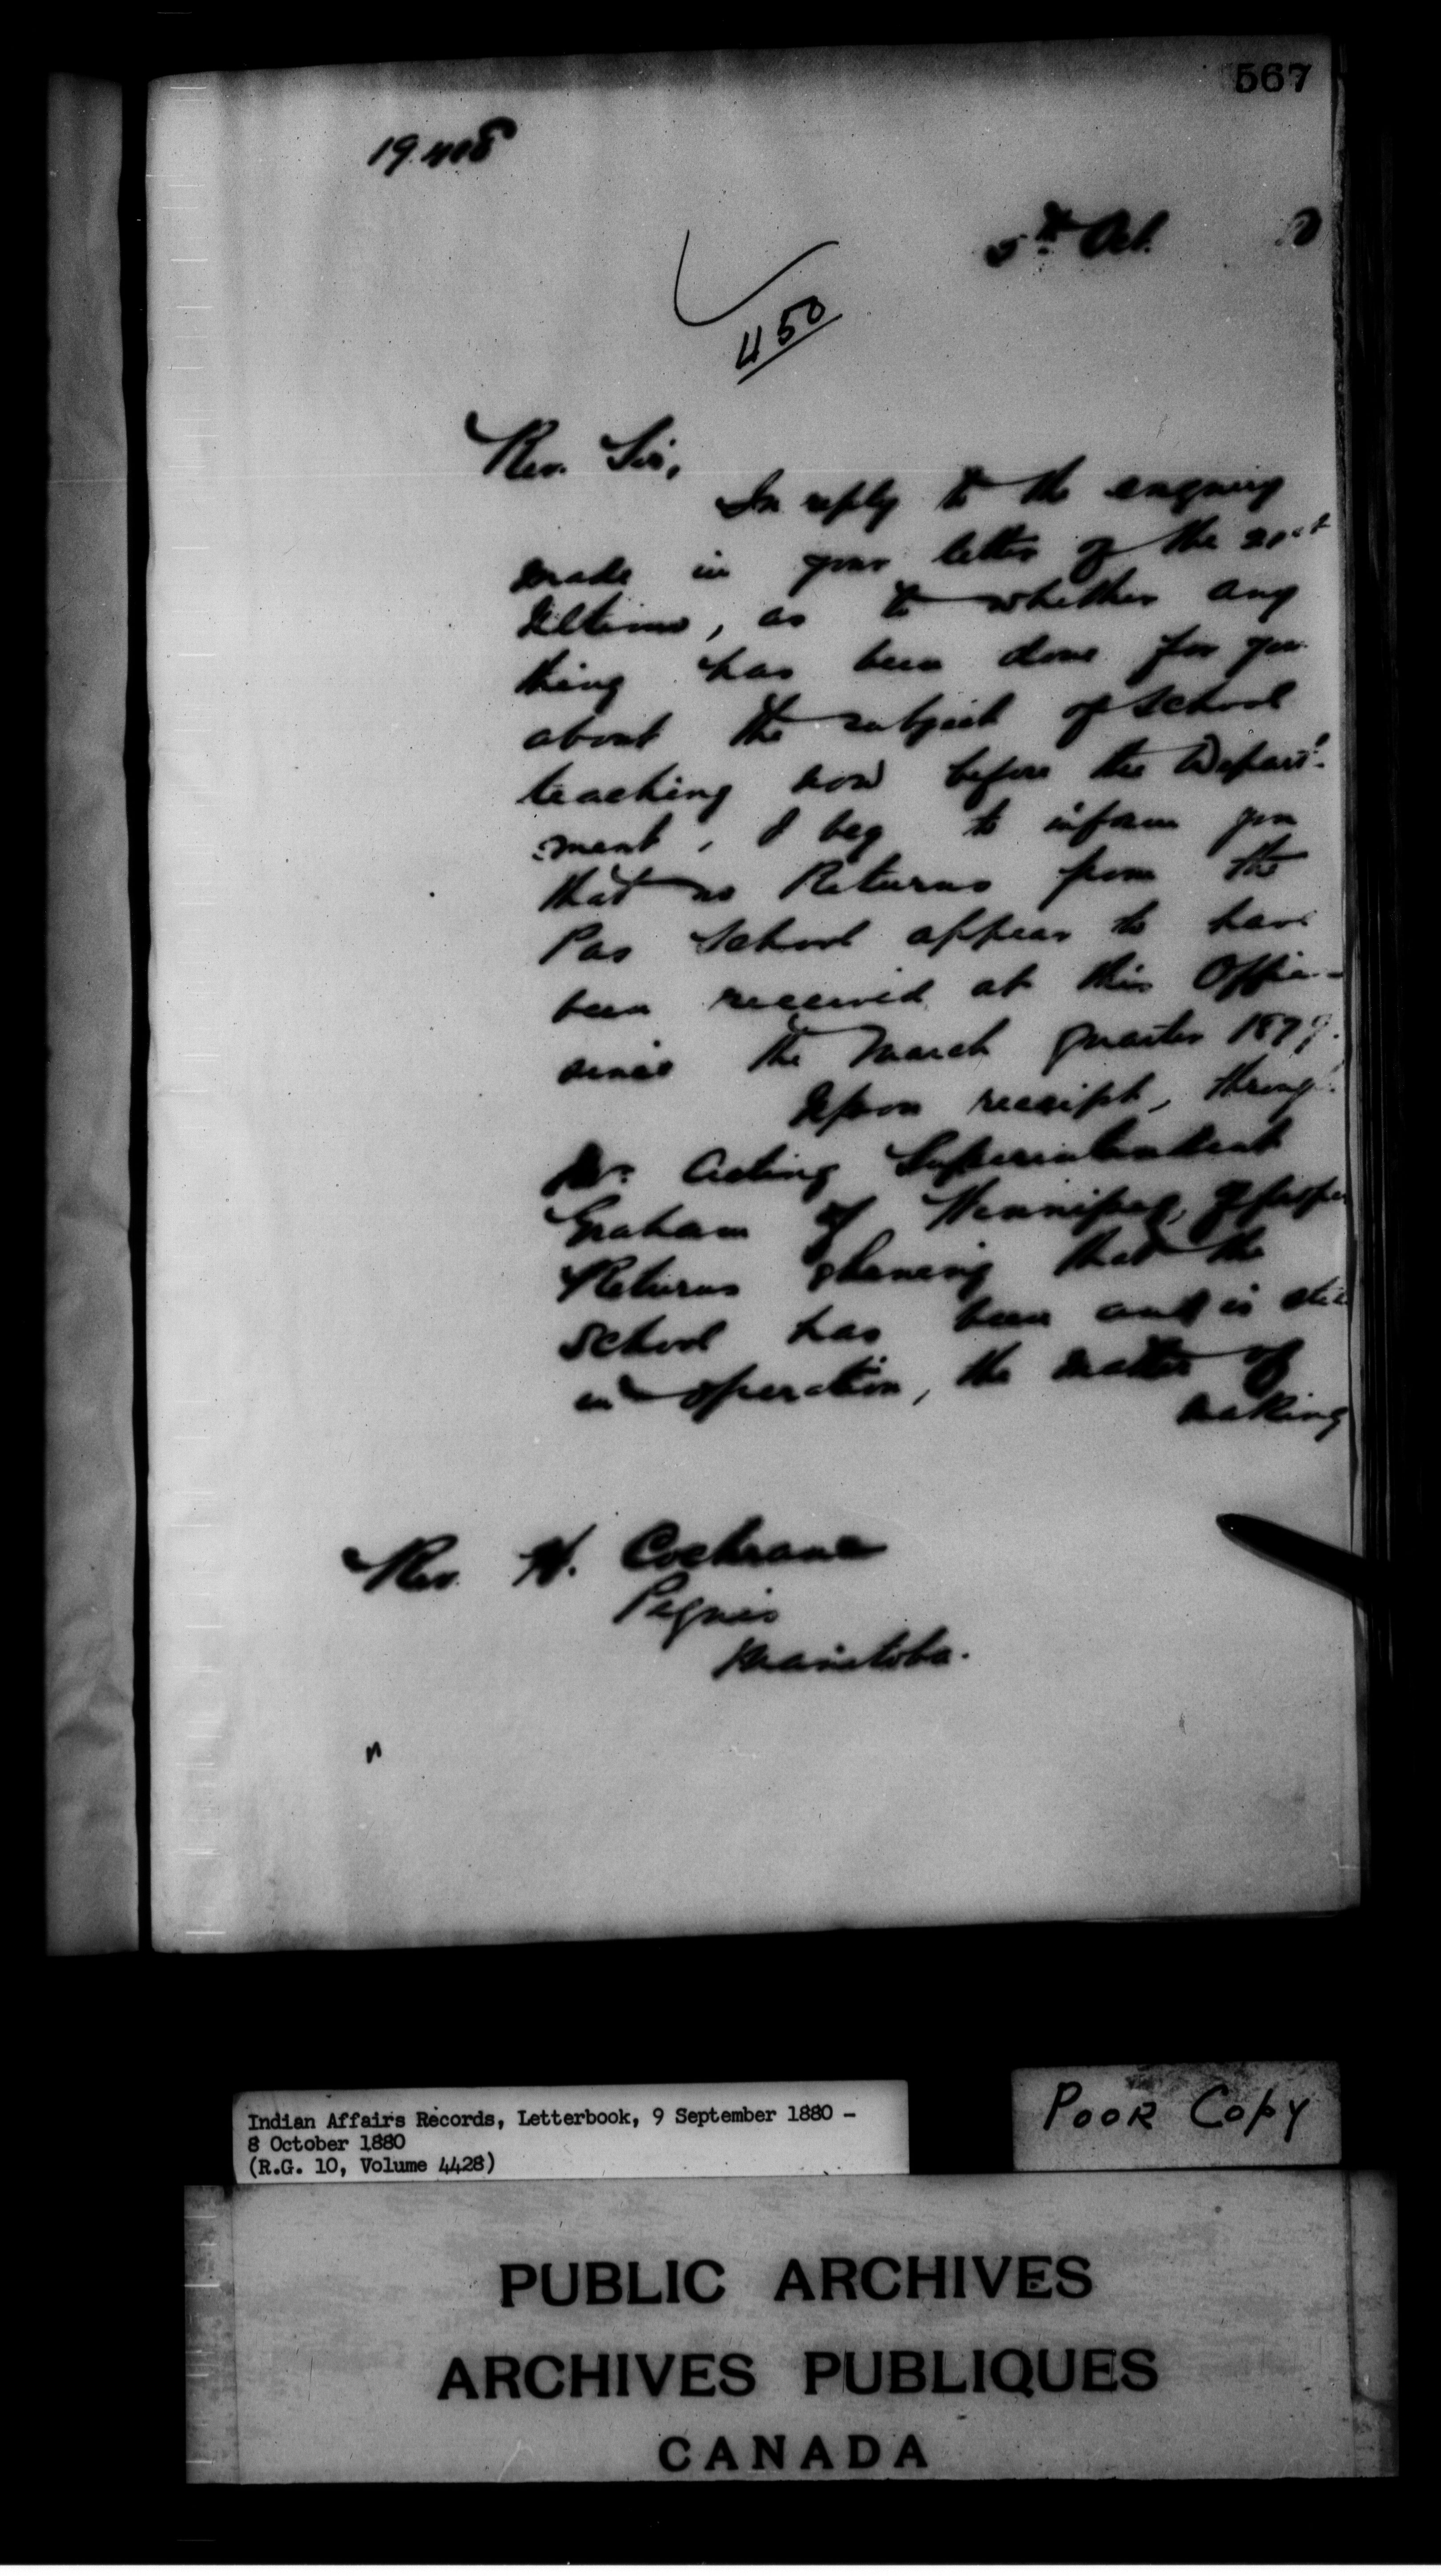 567
19.408
5th Oct. 0
450
Rev. Sir,
In reply to the enquiry
made in your letter of the
Ultimo, as to whether any
thing has been done for you
about the subject of School
teaching now before the Depart-
-ment, I beg to inform you
that no Returns from the
Pas School appear to have
been received at this Office
since the March quarter 1879.
Upon receipt, through
Mr. Acting Superintendent
Graham of Winnipeg, of proper
Returns showing that the
School has been and is still
in operation, the matter of
making
Rev. H. Cochrane
Peguis
Manitoba.
Indian Affairs Records, Letterbook, 9 September 1880 -
8 October 1880
(R.G. 10, Volume 4428)
POOR COPY
PUBLIC ARCHIVES
ARCHIVES PUBLIQUES
CANADA